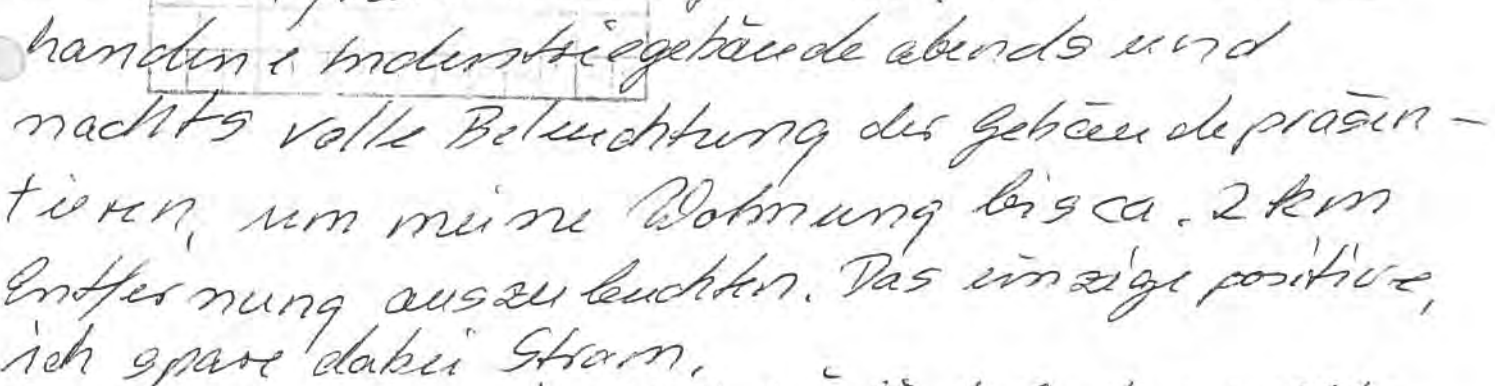 handene Industriegebäude abends und
nachts volle Beleuchtung der Gebäude präsen-
tieren, um meine Wohnung bis ca. 2 km
Entfernung auszuleuchten. Das einzige positive,
ich spare dabei Strom.